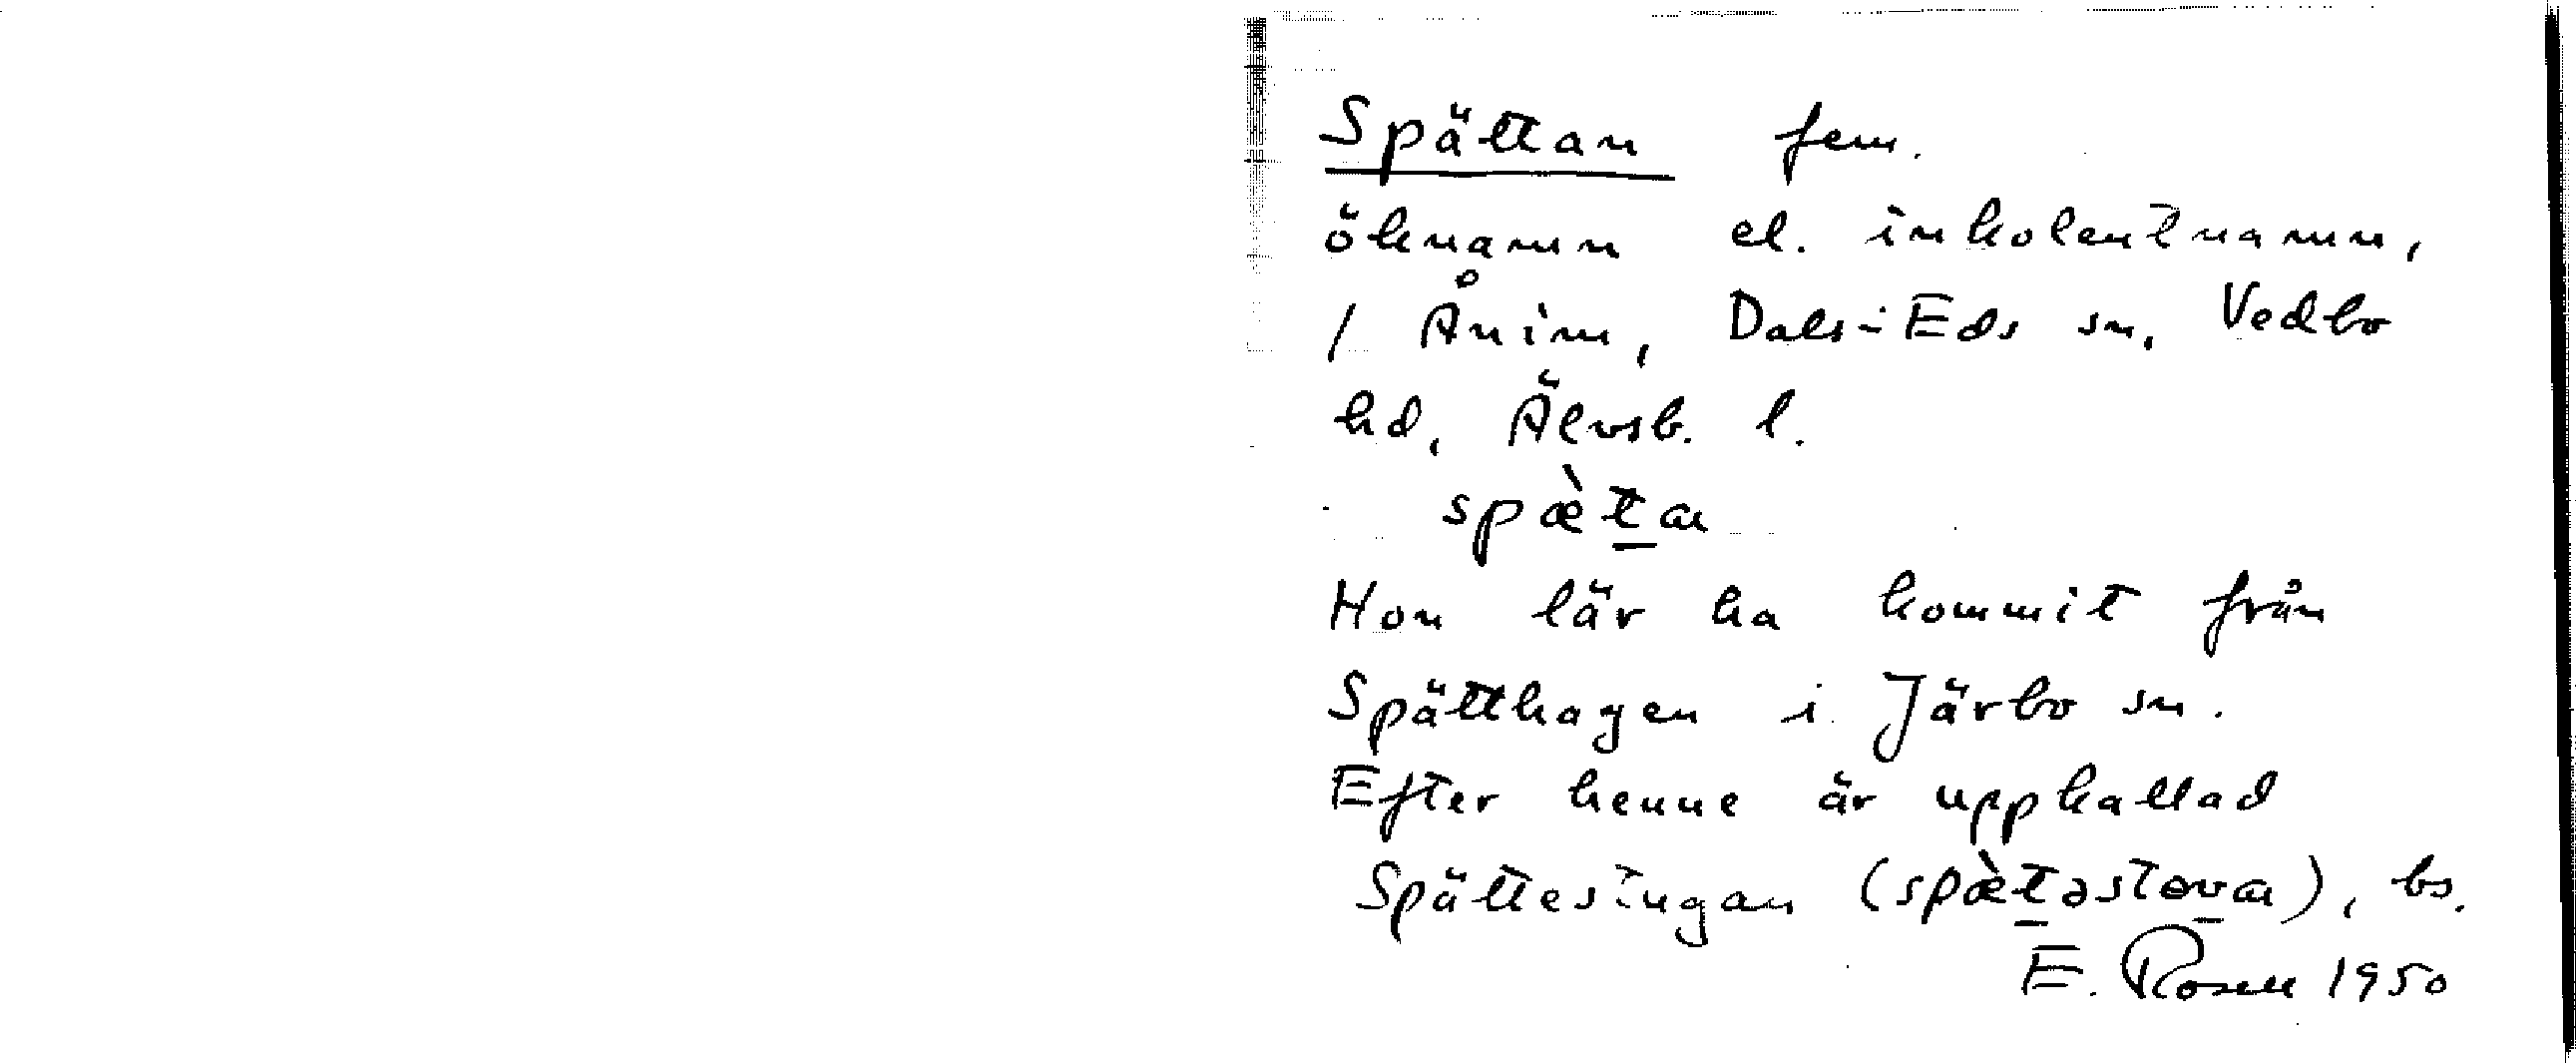 Spättan fem.
öknamn el. inkolentnamn,
/ Ånim, Dals-Eds sn, Vedbo
hd, Älvsb. l.
spæ̀t̲a
Hon lär ha kommit från
Spätthagen i Järbo sn.
Efter henne är uppkallad
Spättestugan (spæ̀t̲əstov̲a), bs.
E. Rosell 1950